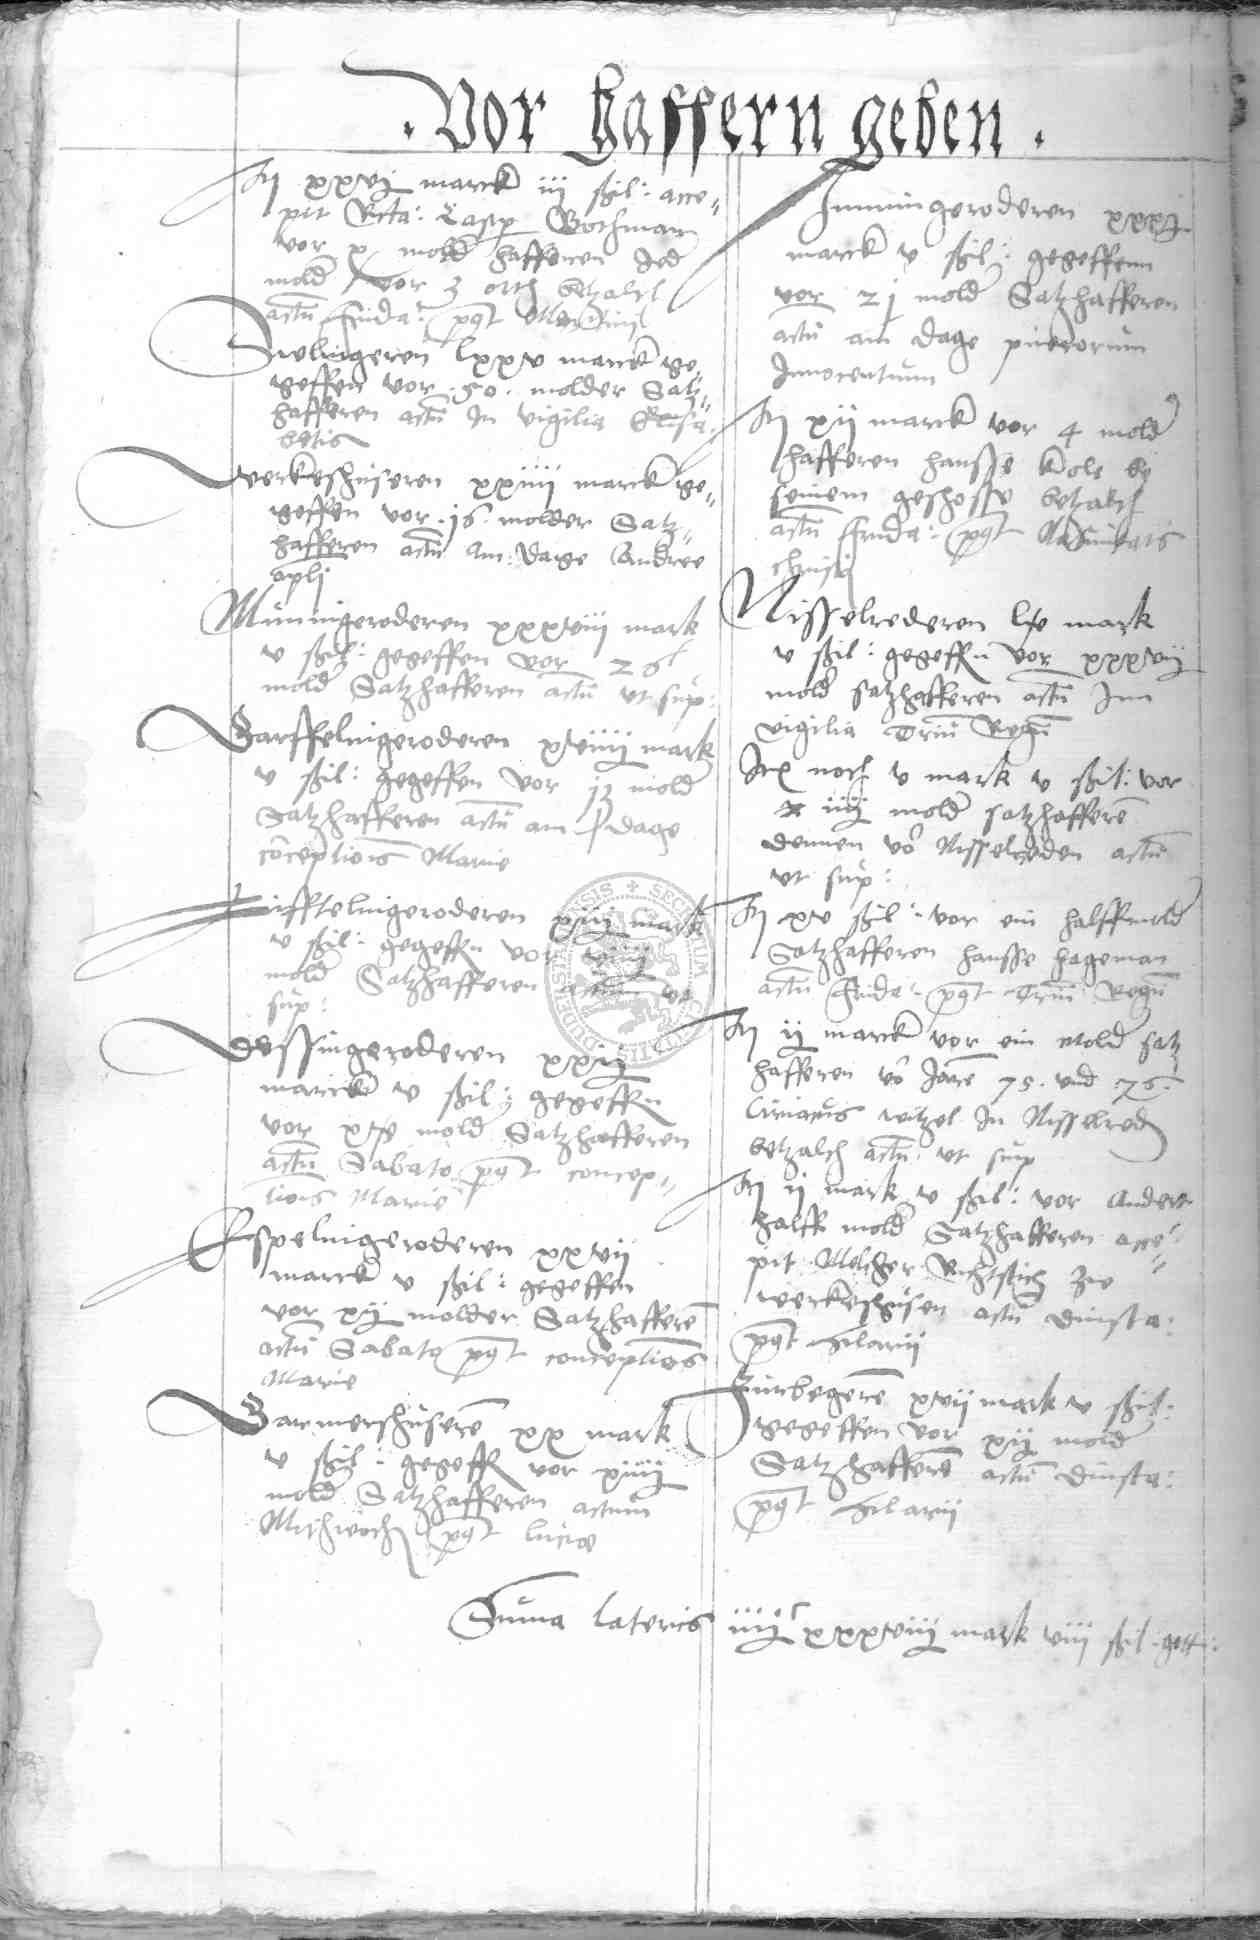 . Vor haffern geben .
It xxvj marck iij ßil: acce„
pit Rcta: Casp Gothman
vor x mold hafferen Jed
mold vor 3 orth betzalt
actu frida: pqt Martini
Welingeren lxxv marck ge„
geffen vor .50. molder Satz„
hafferen actu In vigilia Elisa„
betis
werkeshuseren xxiiij marck ge„
geffen vor .16. molder Satz„
hafferen actu Am Dage Andree
apli
Mumingeroderen xxxviij mark
v ßil: gegeffen vor 26
mold Satzhafferen actu ut sup:
Garffelingeroderen xviiij mark
v ßil: gegeffen vor 13 mold
Satzhafferen actu am dage
conceptiois Marie
Tifftelingeroderen xiij mark
v ßil: gegeffn vor viiij
mold Satzhafferen actum ut
sup:
Dessingeroderen xxij
marck v ßil: gegeffn
vor xv mold Satzhafferen
actu Sabato pqt concep„
tiois Marie
Espelingeroderen xxvij
marck v ßil: gegeffen
vor xij molder Satzhaffere
actu Sabato pqt conceptiois
Marie
Germershusere xx mark
v ßil: gegeff vor xiiij
mold Satzhafferen actum
Mithwoch pqt lucie
Immingeroderen xxxj
marck v ßil: gegeffenn
vor 21 mold Satzhafferen
actu am dage puerorum
Innocentium
It xij marck vor 4 mold
hafferen hansse kole by
seinem geschosse betzalt
actu frida: pqt Natiuitatis
christi
Nisselrederen lv mark
v ßil: gegeffn vor xxxvij
mold satzhafferen actu Inn
vigilia Triu Regu
Itx noch v mark v ßil: vor
iiij mold satzhaffere
dennen vo Nisselreden actu
ut sup:
It xv ßil: vor ein halffmold
Satzhafferen hansse hageman
actu frida: pqt Triu Regu
It ij marck vor ein mold satz
hafferen vo Jare 75. vnd .76.
Ciriacus witzel In Nisselred
betzalth actu ut sup
It ij mark v ßil: vor Andert
halff mold Satzhafferen acce„
pit Melcher zue
werkeshusen actu dinsta:
pqt Hilarij
Furbegere xvij mark v ßil:
gegeffen vor xij mold
Satzhaffere actu dinsta:
pqt Hilarij
Suma lateris iiijc xxxviij mark viij ßil. gott: